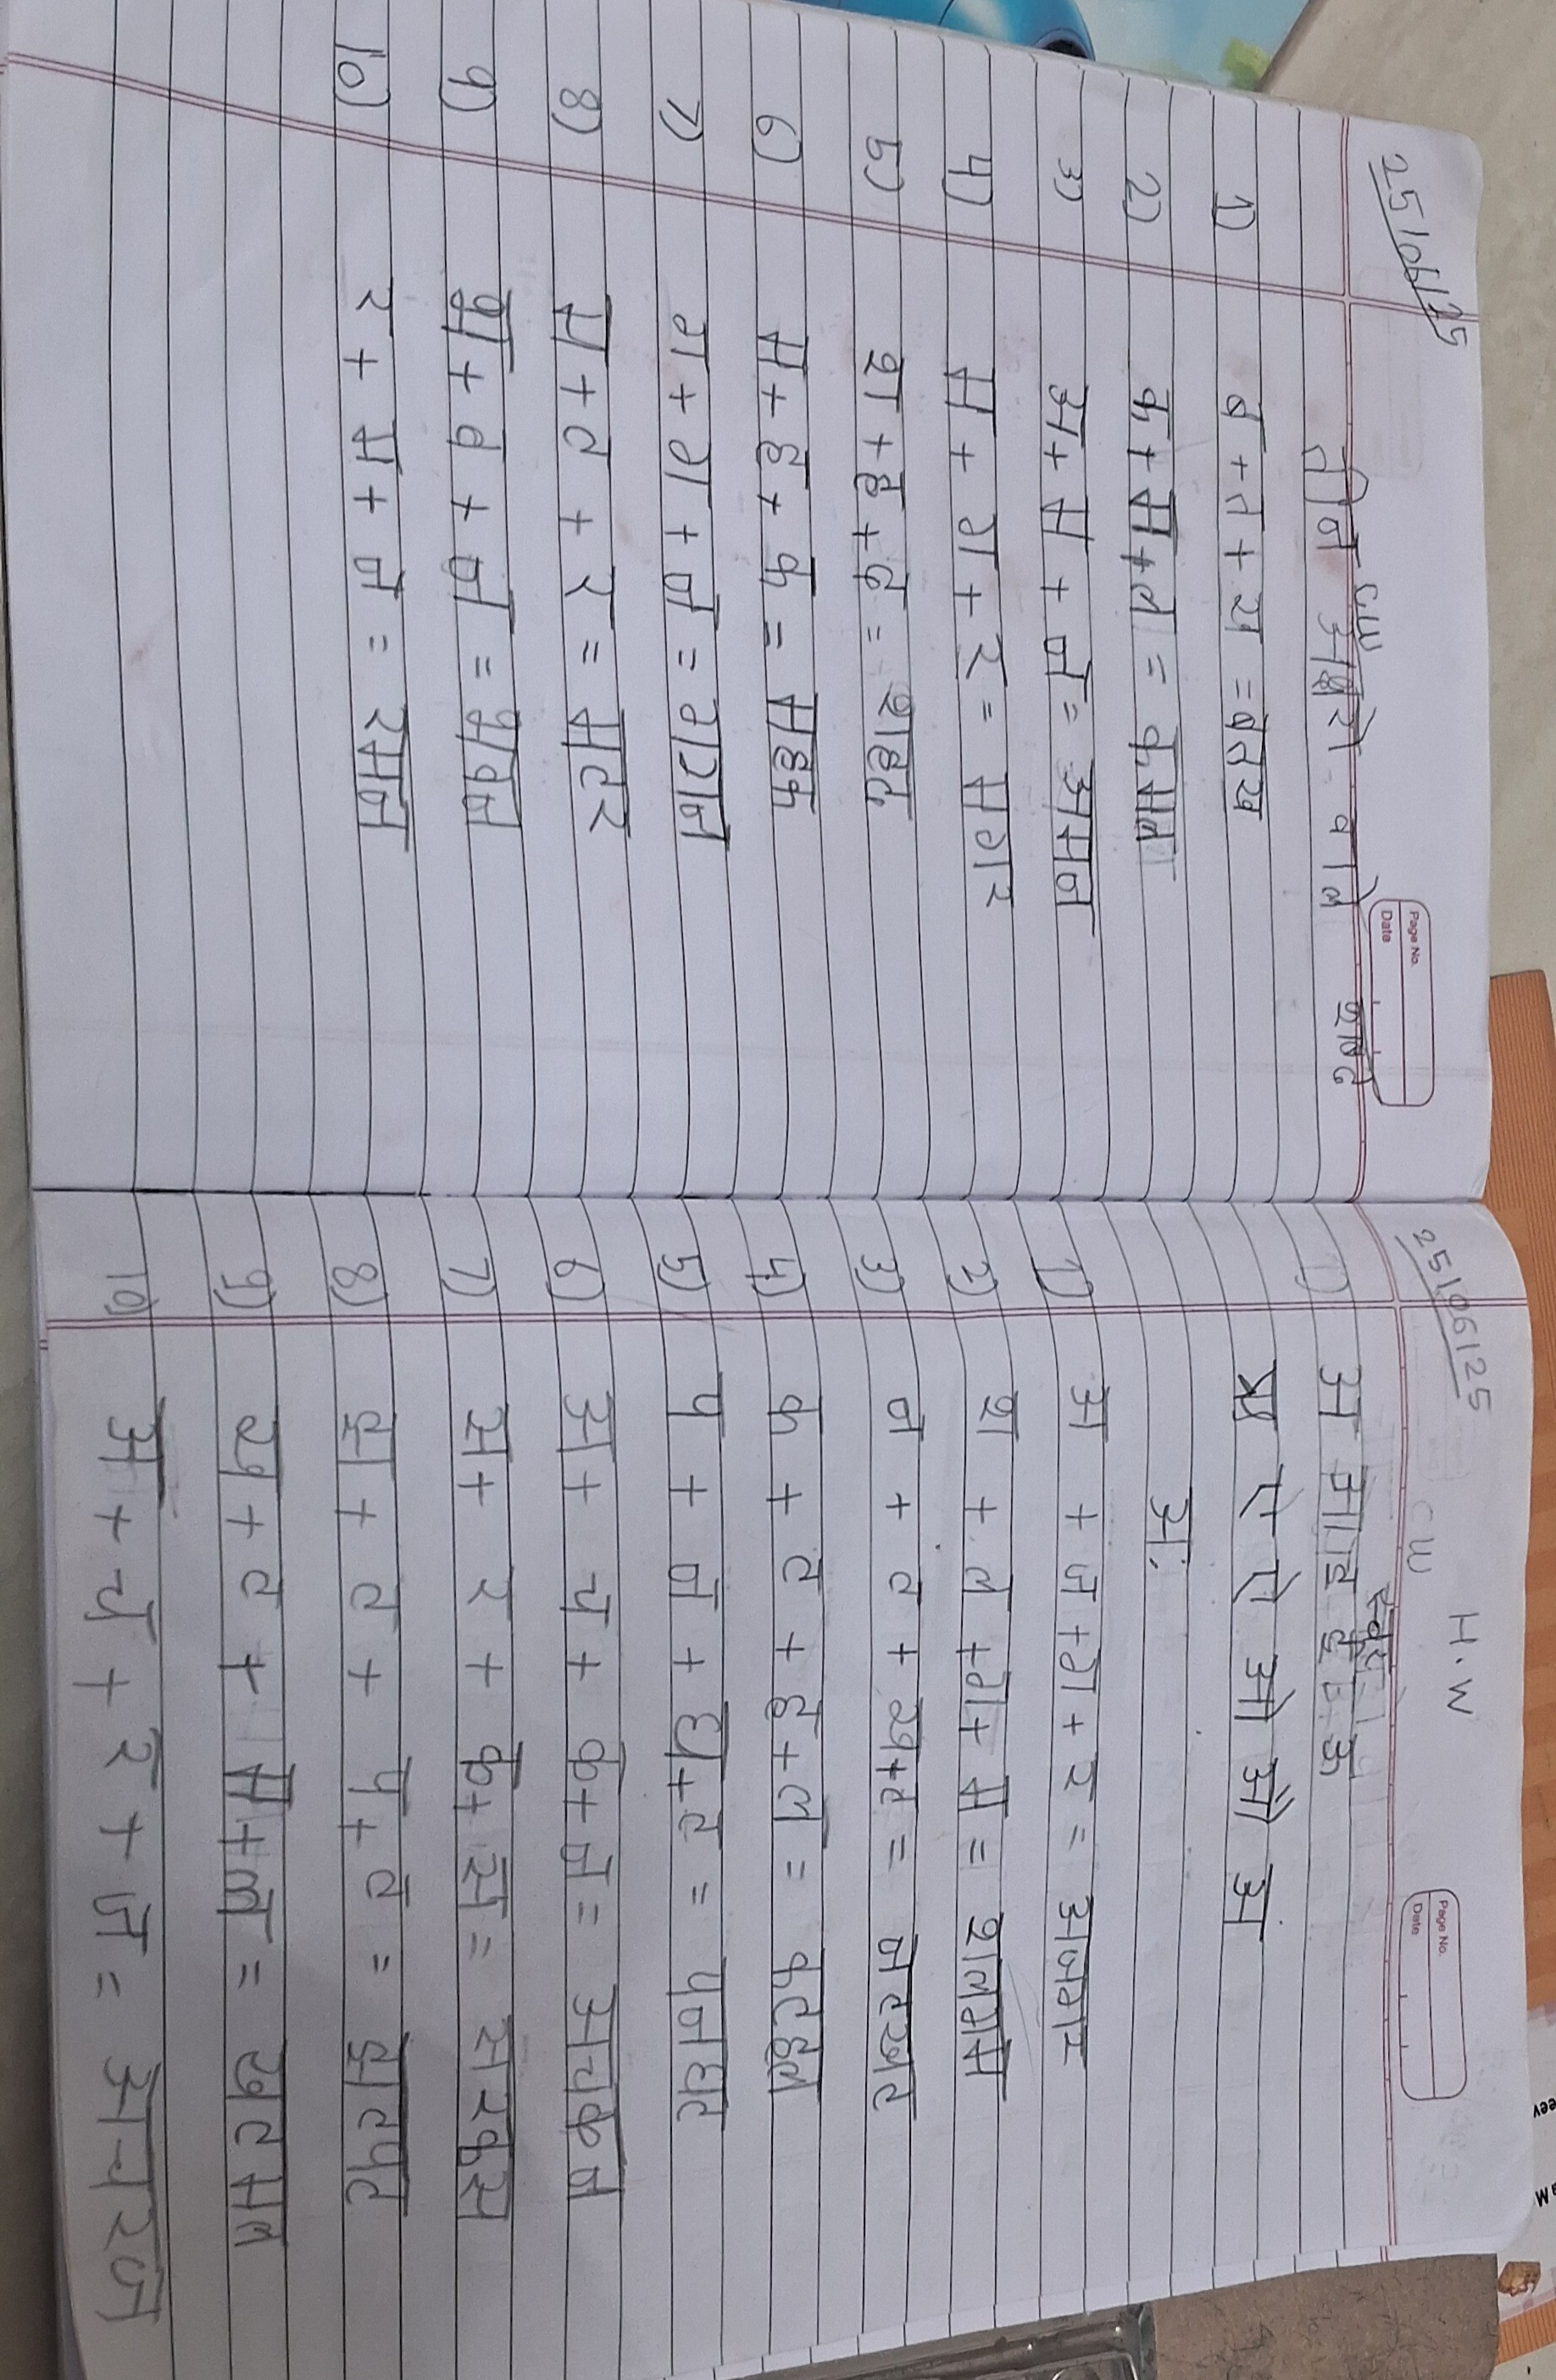 25/06/25
Page No.
Date
CW
तीन अक्षरो वाले शब्द
1) ब + त + ख = बतख
2) क + म + ल = कमल
3) अ + म + न = अमन
4) म + ग + र = मगर
5) श + ह + द = शहद
6) म + ह + क = महक
7) ग + ग + न = गगन
8) म + ट + र = मटर
9) भ + व + न = भवन
10) र + म + न = रमन
25/06/25
CW
H.W
Page No.
Date
स्वर
1) अ आ इ ई उ ऊ
ऋ ए ऐ ओ औ अं
अः
1) अ + ज + ग + र = अजगर
2) श + ल + ग + म = शलगम
3) न + ट + ख + ट = नटखट
4) क + ट + ह + ल = कटहल
5) प + न + घ + ट = पनघट
6) अ + च + क + न = अचकन
7) स + र + क + स = सरकस
8) झ + ट + प + ट = झटपट
9) ख + ट + म + ल = खटमल
10) अ + च + र + ज = अचरज